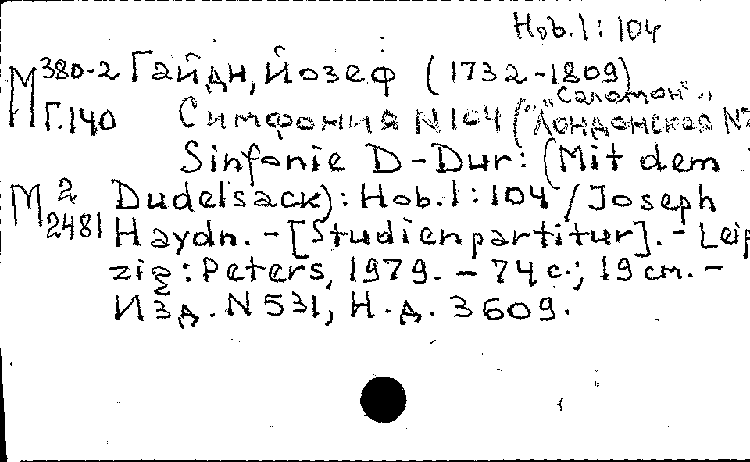 Hob.I: 104
М 380-2 Гайдн, Йозеф (1732-1809)
"Саломон"
Г.140 Симфония N 104 ("Лондонская N
Sinfonie D-Dur: (Mit dem
М 2 2481 Dudelsack): Hob.I: 104 / Joseph
Haydn. - [Studienpartitur]. - Leip
zig: Peters, 1979. - 74 с.; 19 см. -
Изд. N 531, Н.д. 3609.